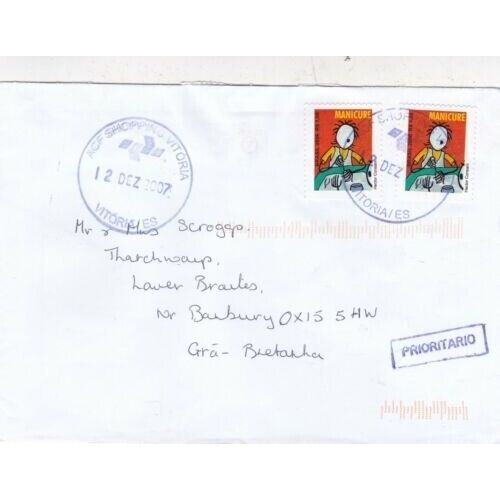 MANICURE
MANICURE
ACF SHOPPING VITÓRIA
12 DEZ 2007
VITORIA/ES
SHO
DEZ
VITORIA/ES
Mr & Mrs Scroggs.
Thatchways,
Lower Brailes,
Nr Banbury OX15 5HW
Grã-Bretanha
PRIORITARIO